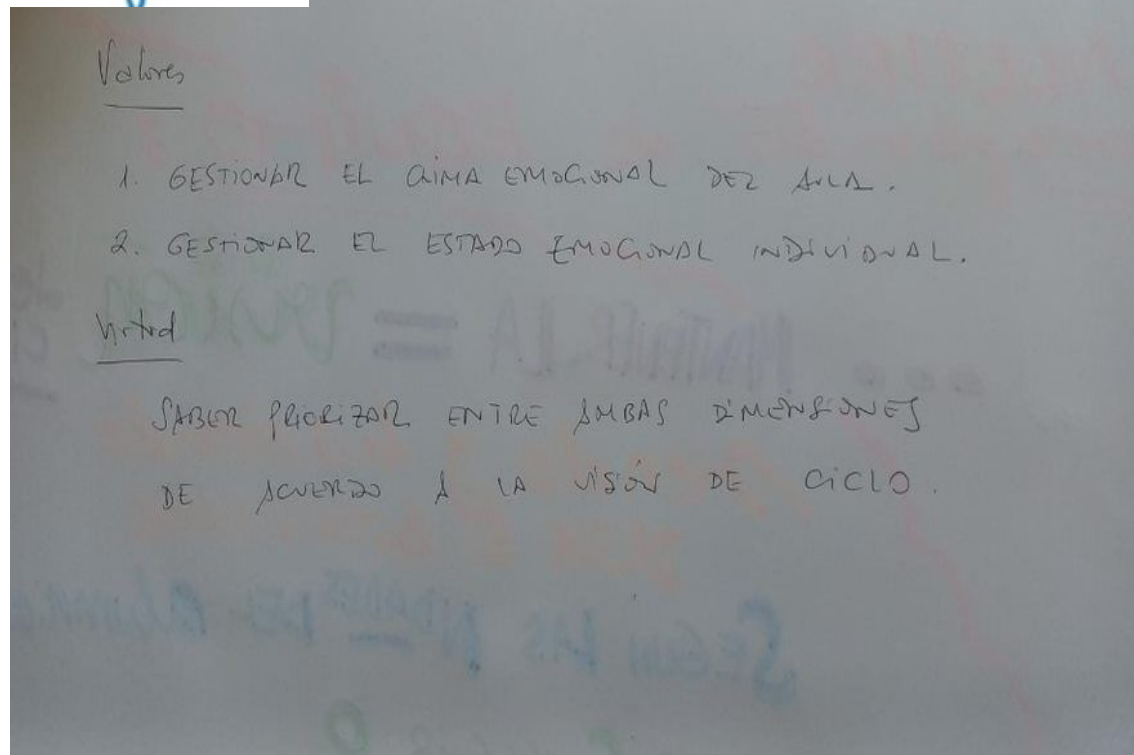 Valores
1. GESTIONAR EL CLIMA EMOCIONAL DEL AULA.
2. GESTIONAR EL ESTADO EMOCIONAL INDIVIDUAL.
Virtud
SABER PRIORIZAR ENTRE AMBAS DIMENSIONES
DE ACUERDO A LA VISIÓN DE CICLO.
MANTENER LA = visión
SEGÚN LAS DEL